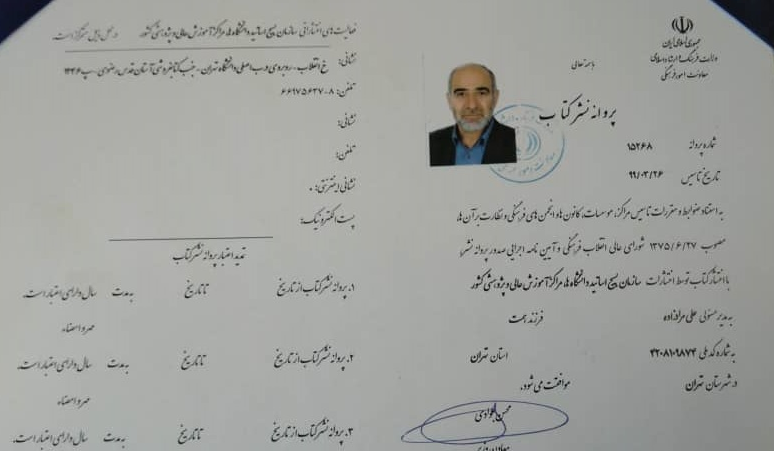 جمهوری اسلامی ایران
وزارت فرهنگ و ارشاد اسلامی
معاونت امور فرهنگی
باسمه تعالی
پروانه نشر کتاب
شماره پروانه ۱۵۲۶۸
تاریخ تاسیس ۹۹/۰۳/۲۶
به استناد ضوابط و مقررات تاسیس مراکز، موسسات، کانون ها و انجمن های فرهنگی و نظارت بر آن ها،
مصوب ۱۳۷۵/۶/۲۷ شورای عالی انقلاب فرهنگی و آیین نامه اجرایی صدور پروانه نشر،
با انتشار کتاب توسط انتشارات سازمان بسیج اساتید دانشگاه ها، مراکز آموزش عالی و پژوهشی کشور
به مدیر مسئولی علی مرادزاده فرزند همت
به شماره کد ملی ۴۲۰۸۱۰۹۸۷۴ استان تهران
در شهرستان تهران موافقت می شود.
محسن جوادی
معاون وزیر
فعالیت های انتشاراتی سازمان بسیج اساتید دانشگاه ها، مراکز آموزش عالی و پژوهشی کشور در محل ذیل متمرکز است
نشانی: خ انقلاب - روبروی درب اصلی دانشگاه تهران - جنب کتابفروشی آستان قدس رضوی - پ ۱۴۴۶
تلفن: ۶۶۹۷۵۶۳۷-۸
نشانی:
تلفن:
نشانی اینترنتی: ۰
پست الکترونیک:
تمدید اعتبار پروانه نشر کتاب
۱. پروانه نشر کتاب از تاریخ تا تاریخ به مدت سال دارای اعتبار است.
مهر و امضاء
۲. پروانه نشر کتاب از تاریخ تا تاریخ به مدت سال دارای اعتبار است.
مهر و امضاء
۳. پروانه نشر کتاب از تاریخ تا تاریخ به مدت سال دارای اعتبار است.